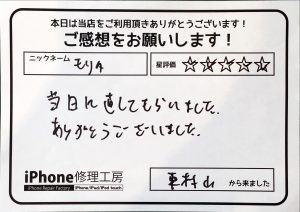 本日は当店をご利用頂きありがとうございます！
ご感想をお願いします！
ニックネーム
モリタ
星評価 ☆☆☆☆☆
当日に直してもらいました。
ありがとうございました。
iPhone修理工房
iPhone Repair Factory iPhone/iPad/iPod touch
東村山 から来ました